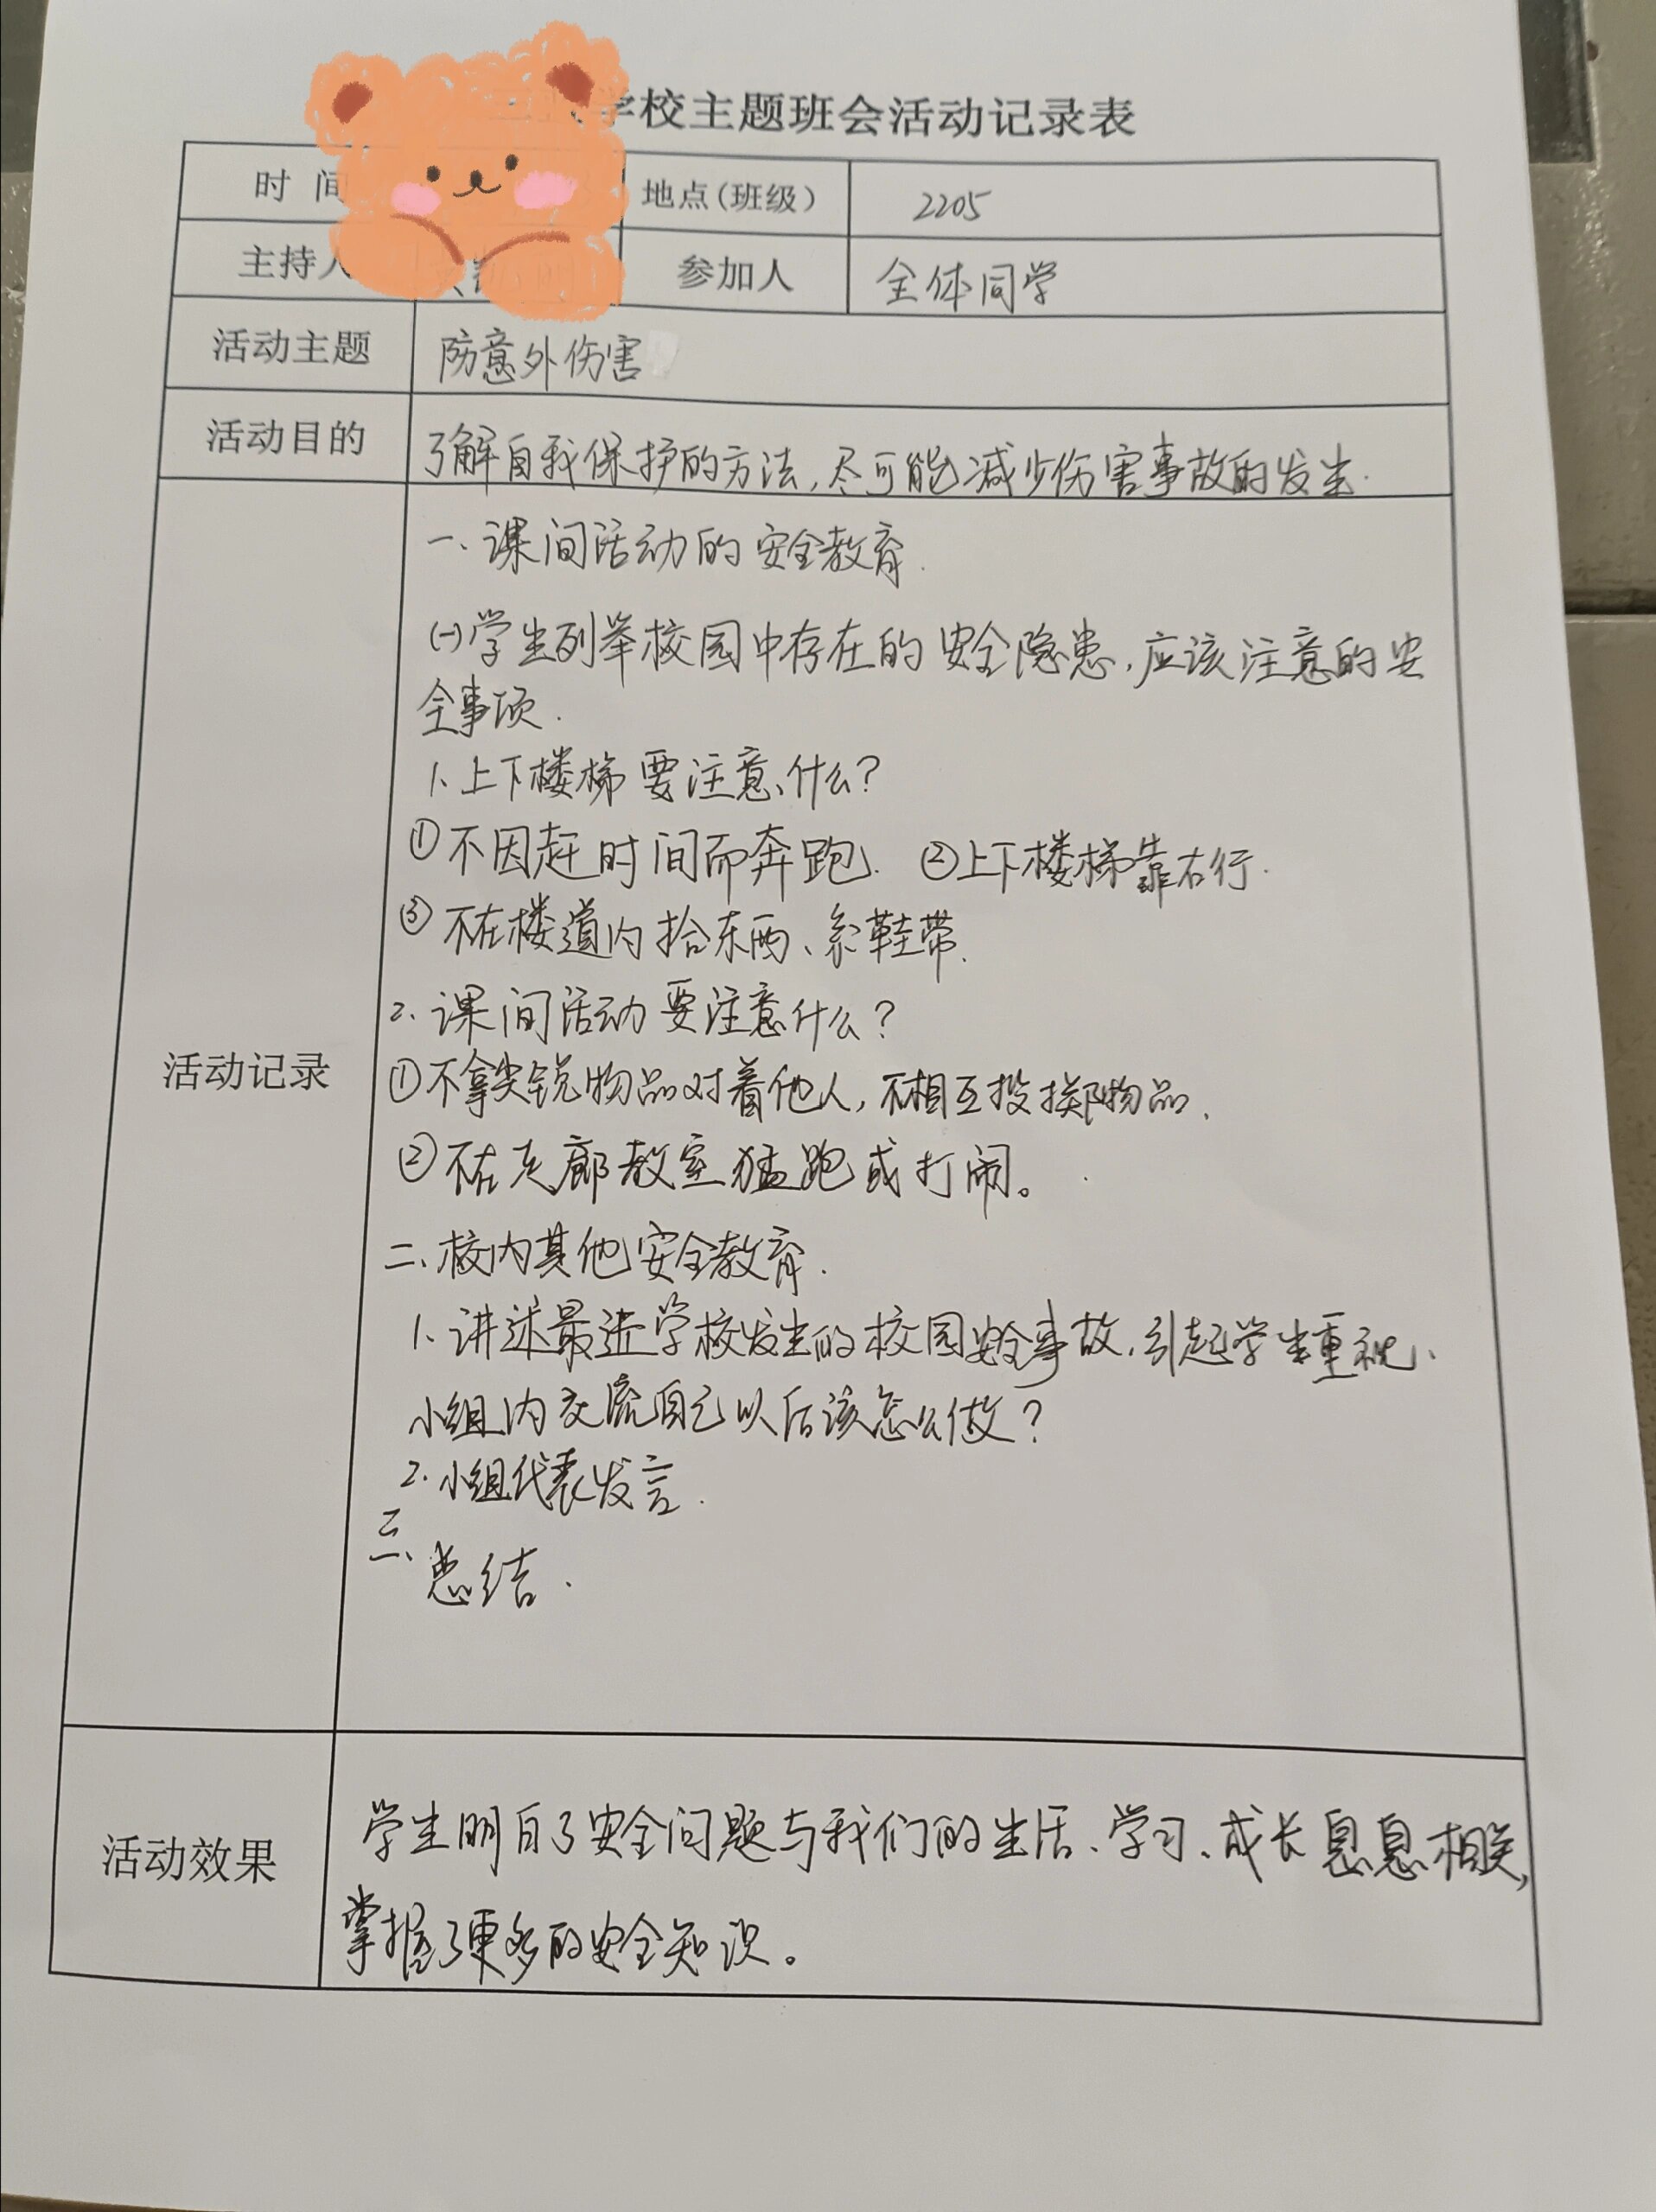 学校主题班会活动记录表
时 间 地点(班级) 2205
主持人 参加人 全体同学
活动主题 防意外伤害
活动目的 了解自我保护的方法,尽可能减少伤害事故的发生.
活动记录
一、课间活动的安全教育.
(一)学生列举校园中存在的安全隐患,应该注意的安
全事项.
1、上下楼梯要注意什么?
①不因赶时间而奔跑. ②上下楼梯靠右行.
③不在楼道内拾东西、系鞋带.
2、课间活动要注意什么?
①不拿尖锐物品对着他人,不相互投掷物品.
②不在走廊教室猛跑或打闹。
二、校内其他安全教育.
1、讲述最近学校发生的校园安全事故,引起学生重视、
小组内交流自己以后该怎么做?
2.小组代表发言.
三、总结.
活动效果
学生明白了安全问题与我们的生活、学习、成长息息相关,
掌握了更多的安全知识。